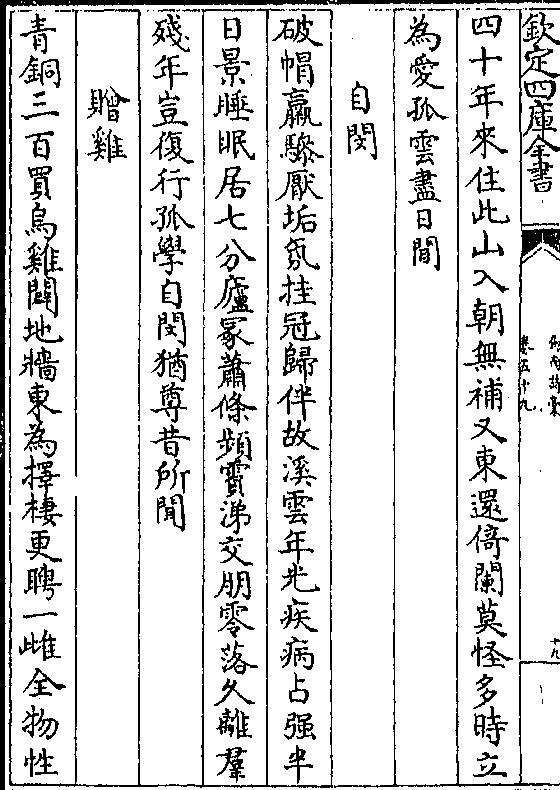 欽定四庫全書
卷五十九
十九
四十年來住此山入朝無補又東還倚闌莫怪多時立
為愛孤雲盡日閒
自閔
破帽羸驂厭垢氛挂冠歸伴故溪雲年光疾病占强半
日景睡眠居七分廬冢蕭條頻霣涕交朋零落久離羣
殘年豈復行孤學自閔猶尊昔所聞
贈雞
青銅三百買烏雞闢地牆東為擇棲更聘一雌全物性